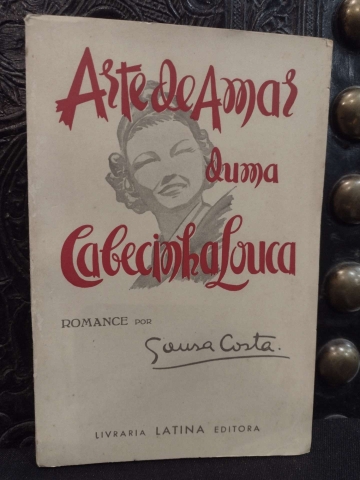 Arte de Amar
duma
Cabecinha Louca
ROMANCE POR
Sousa Costa.
LIVRARIA LATINA EDITORA